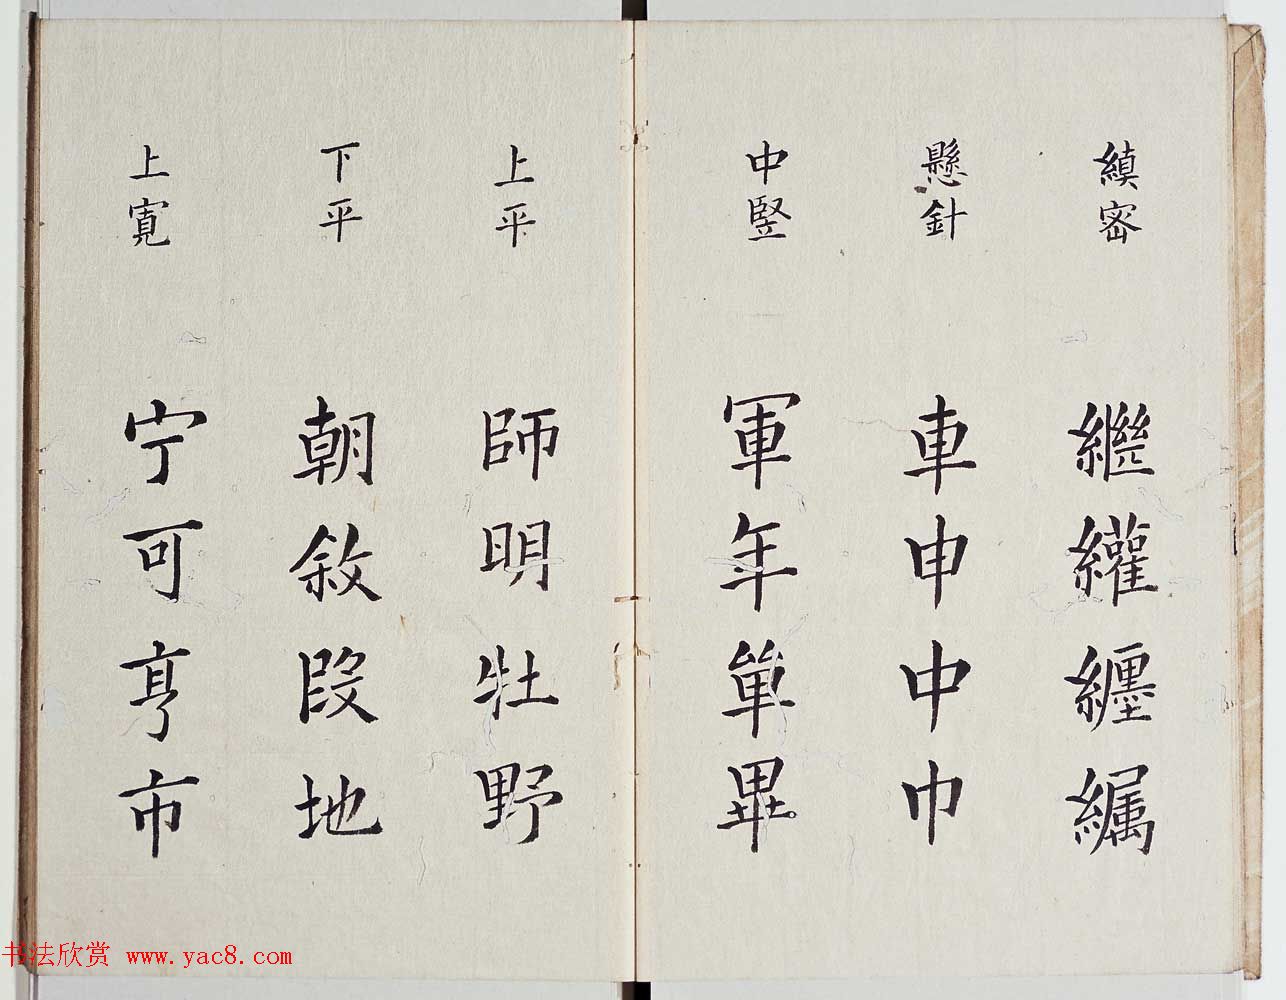 縝密 繼 纏
懸針 車申中巾
中竪 軍年單畢
上平 師明牡野
下平 朝敘段地
上寬 宁可亨市
书法欣赏 www.yac8.com